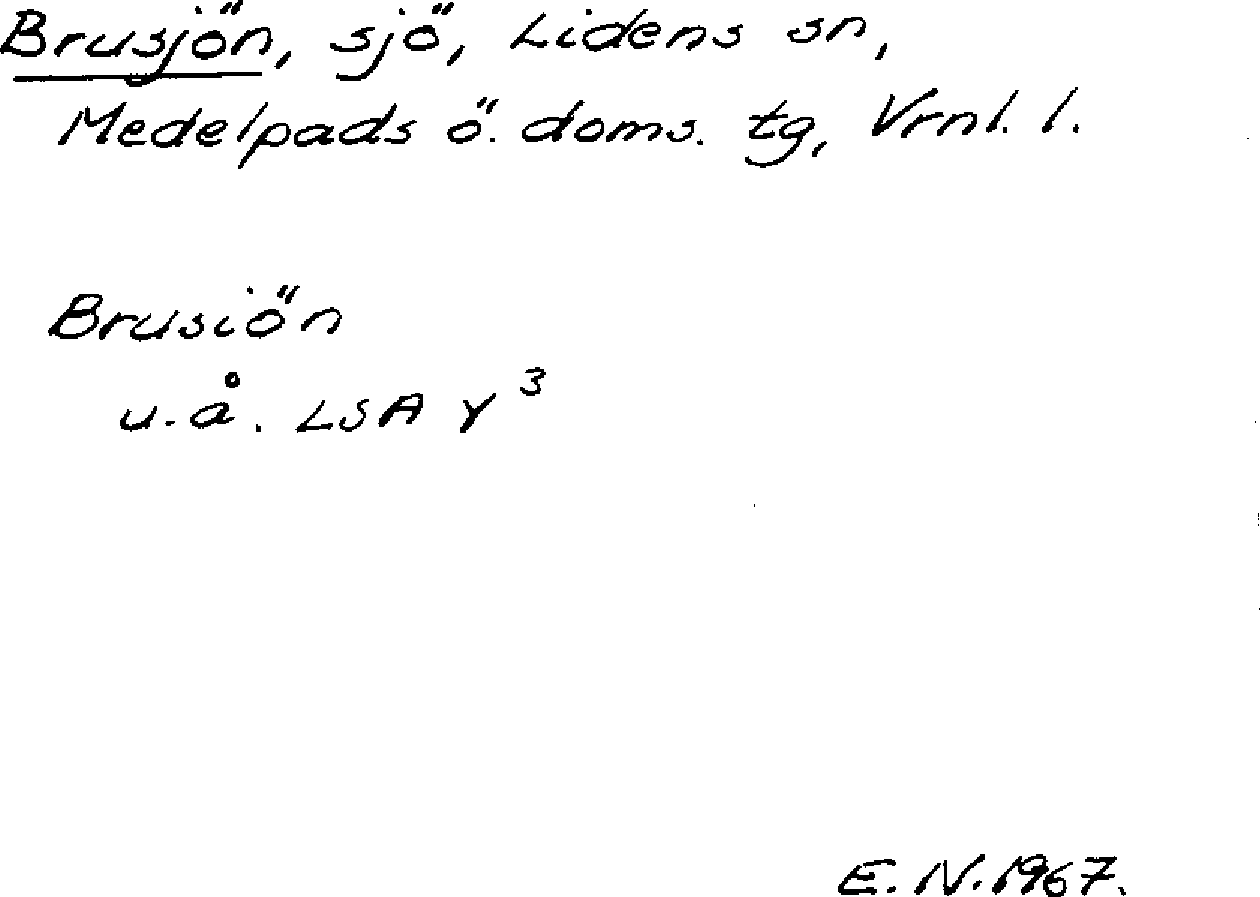 Brusjön, sjö, Lidens sn,
Medelpads ö. doms. tg, Vrnl. l.
Brusiön
u.å. LSA Y³
E. N. 1967.